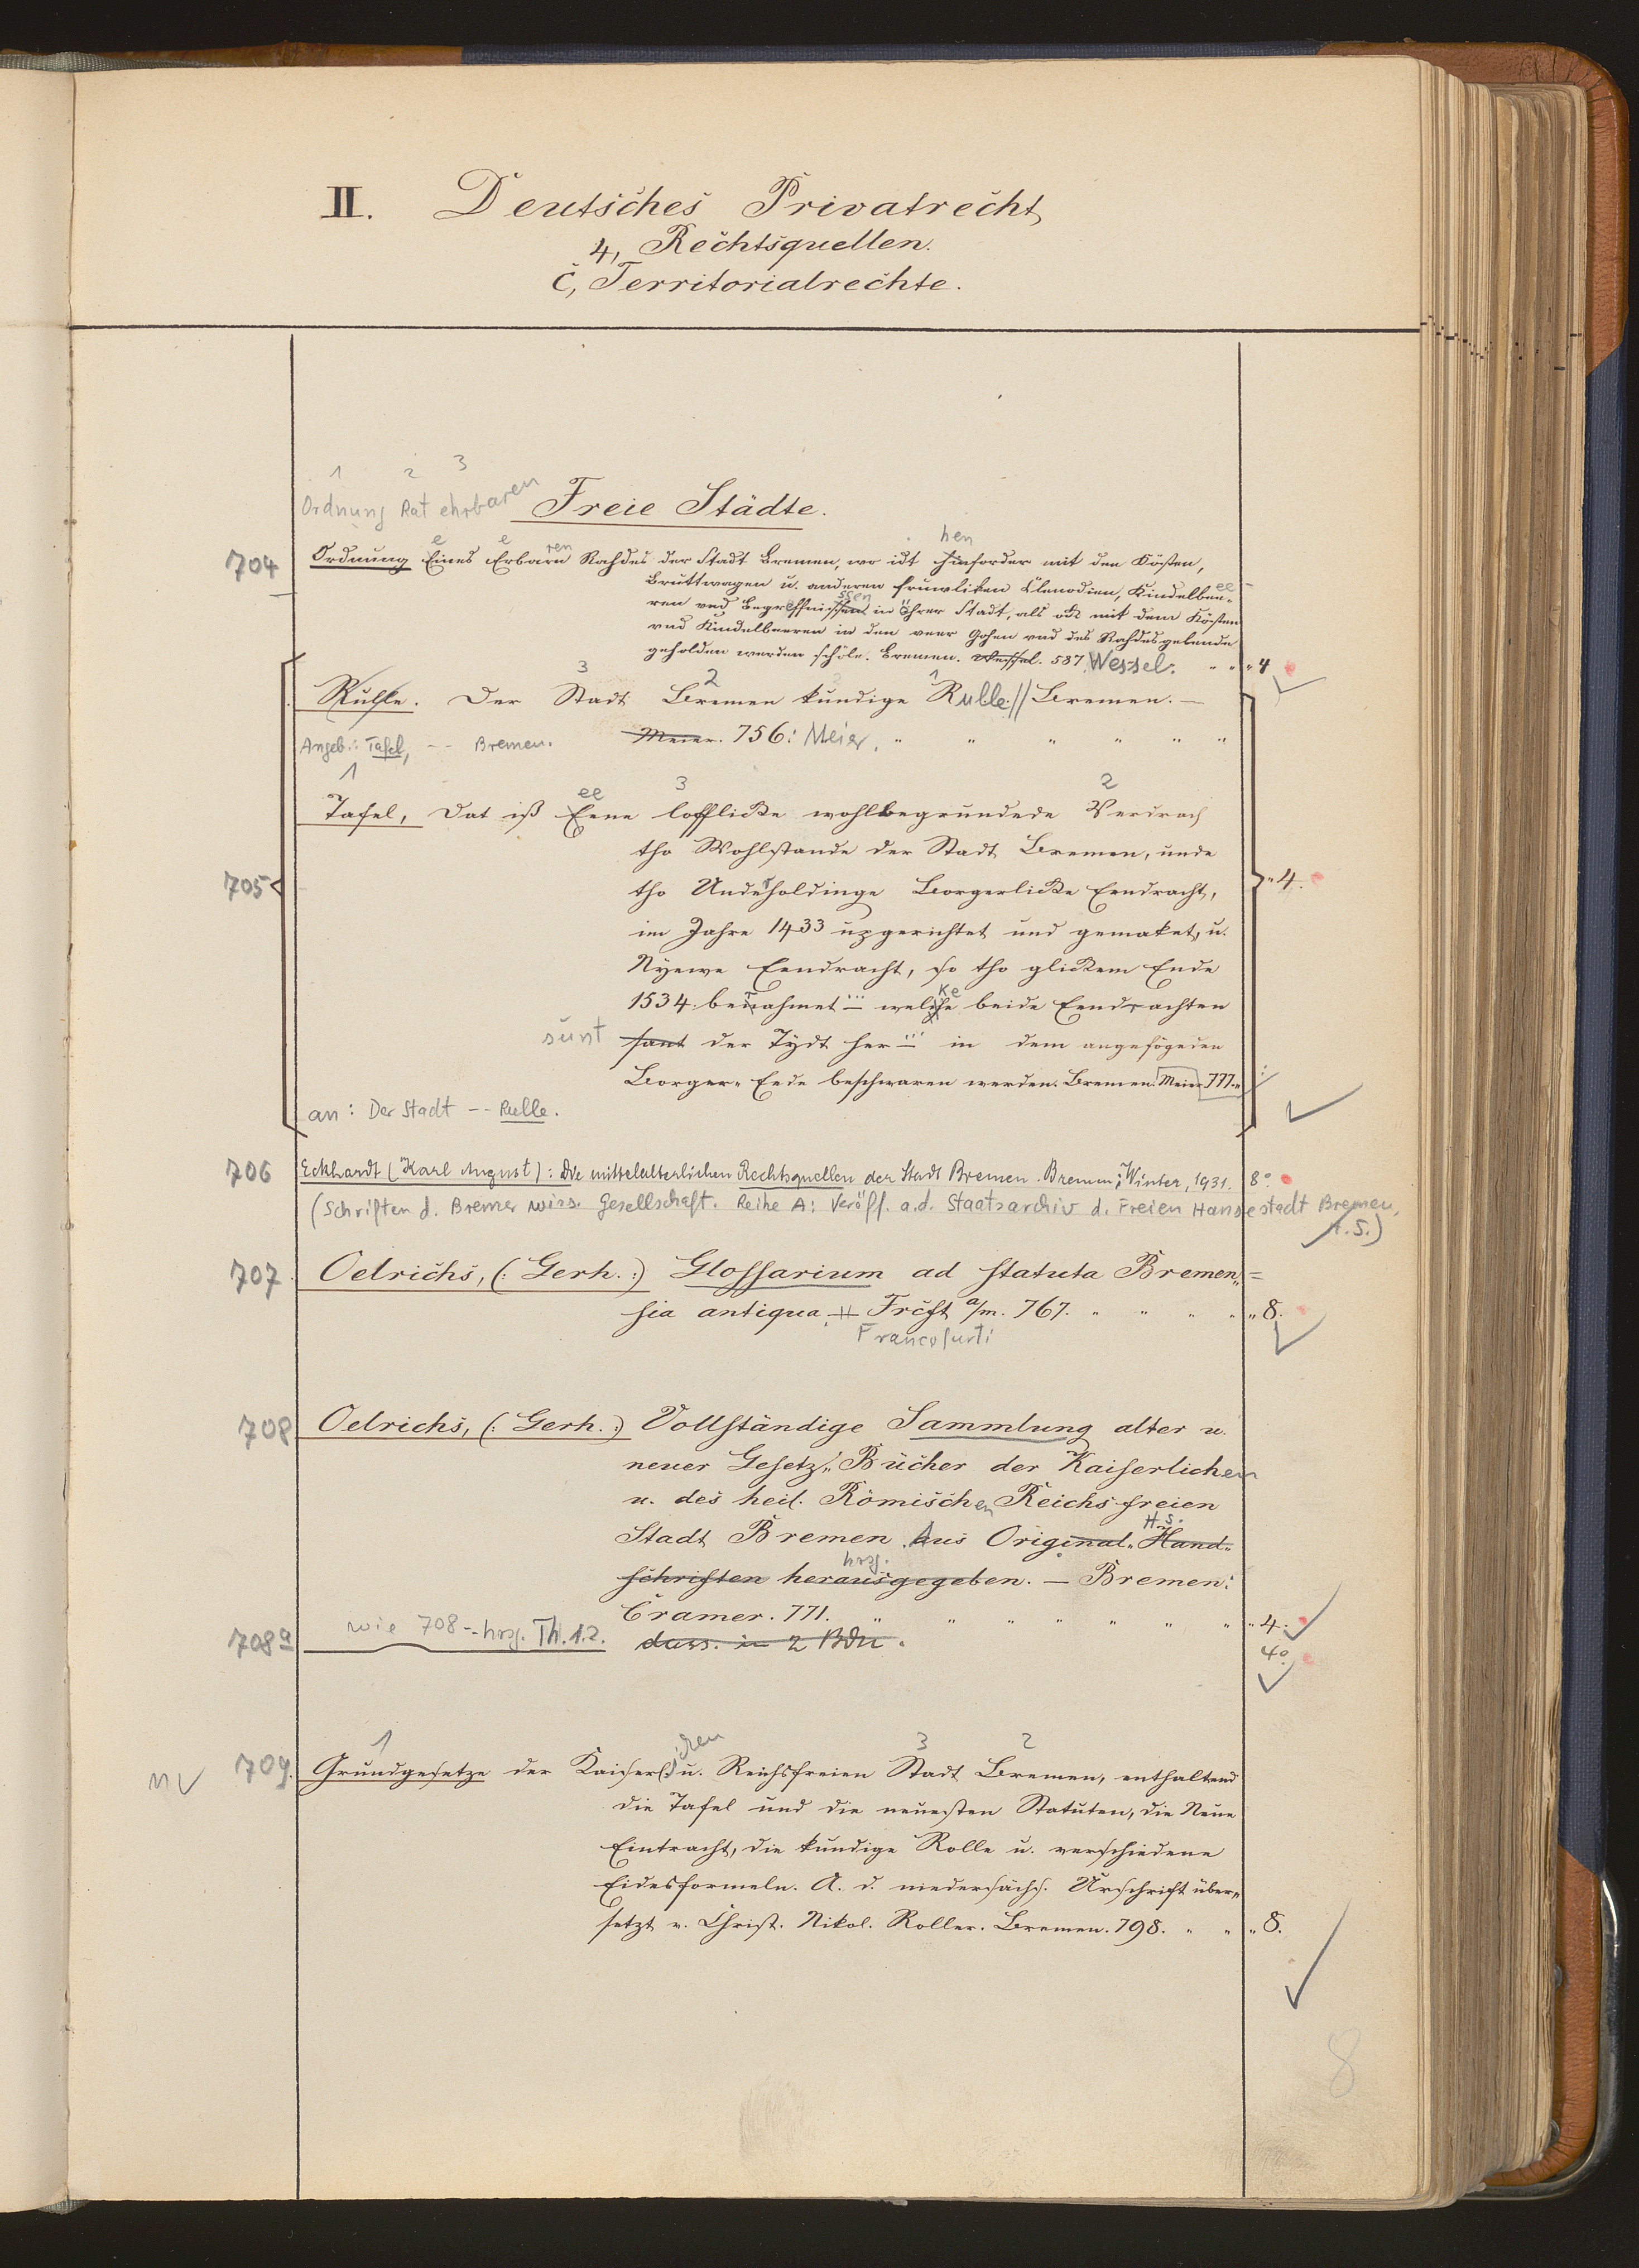 II. Deutsches Privatrecht
4, Rechtsquellen.
c, Territorialrechte.
1 2 3
Ordnung Rat ehrbaren
Freie Städte.
hen
e e ren
704 Ordnung Eines Erbarn Rahdes der Stadt Bremen, wo idt hinforder mit den Kösten,
Bruttwagen u. anderen fruwliken Clenodien, Kindelbee-
ssen ee
ren und Begreffnissent in Öhrer Stadt, als ock mit dem Kösten
und Kindelbeeren in den veer Gohen und des Rahdesgebende
geholden werden schöle. Bremen. Wessel. 587. Wessel. " " " 4
3 2 1
Rulle. Der Stadt Bremen kundige Rulle. // Bremen. —
Angeb.: Tafel, -- Bremen. Meier. 756: Meier. " " " " " "
1 ee 3 2
705 Tafel, Dat iß Eene lofflicke wohlbegrundede Verdrach
tho Wohlstande der Stadt Bremen, unde
tho Underholdinge Borgerlicke Eendracht, " 4.
im Jahre 1433 upgerichtet und gemaket, u.
Nyewe Eendracht, so tho glickem Ende
r ... ke
1534. beinahmet ... welche beide Eendrachten
sünt sant der Tydt her ... in dem angefögeden
Borger- Eede beschwaren werden. Bremen. Meier 777. "
an: Der Stadt -- Rulle.
706 Eckhardt (Karl August): Die mittelalterlichen Rechtsquellen der Stadt Bremen. Bremen: Winter, 1931. 8°.
(Schriften d. Bremer wiss. Gesellschaft. Reihe A: Veröff. a. d. Staatsarchiv d. Freien Hansestadt Bremen,
H. 5.)
707. Oelrichs, (: Gerh. :) Glossarium ad statuta Bremen =
sia antiqua. Frcft a/m. 767. " " " " " 8.
Francofurti
708 Oelrichs, (: Gerh. :) Vollständige Sammlung alter u.
neuer Gesetz " Bücher der Kaiserlichen
u. des heil. Römischen Reichs freien
H.S.
Stadt Bremen. Aus Original " Hand "
hrsg.
schriften herausgegeben. — Bremen:
Cramer. 771. " " " " " " " " 4.
708a wie 708 -- hrsg. Th. 1.2. dass. in 2 Bdn. 4°
1 ichen 3 2
709. Grundgesetze der Kaiserl. u. Reichsfreien Stadt Bremen, enthaltend
die Tafel und die neuesten Statuten, die Neue
Eintracht, die kundige Rolle u. verschiedene
Eidesformeln. A. d. niedersächs. Urschrift über "
setzt v. Christ. Nikol. Roller. Bremen. 798. " " " 8.
8